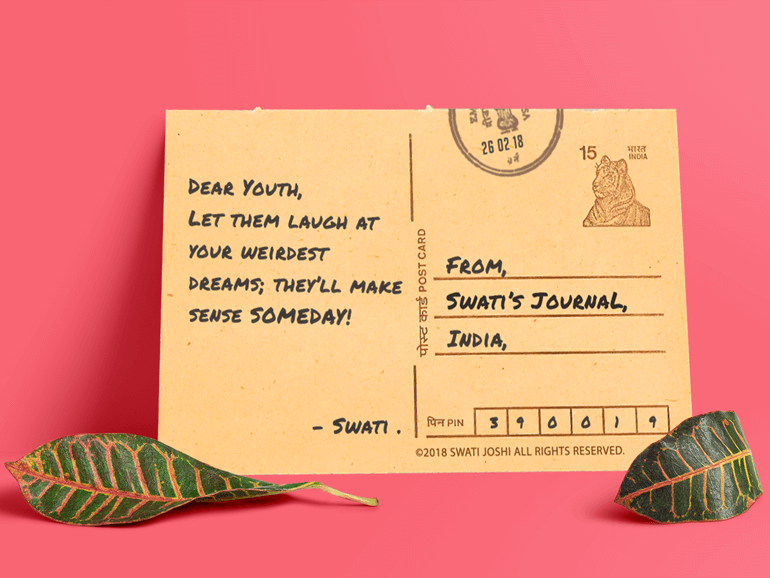 26 02 18
15 भारत
INDIA
DEAR YOUTH,
LET THEM LAUGH AT
YOUR WEIRDEST
DREAMS; THEY'LL MAKE
SENSE SOMEDAY!
- SWATI .
पोस्ट कार्ड POST CARD
FROM,
SWATI'S JOURNAL,
INDIA,
पिन PIN 3 9 0 0 1 9
©2018 SWATI JOSHI ALL RIGHTS RESERVED.